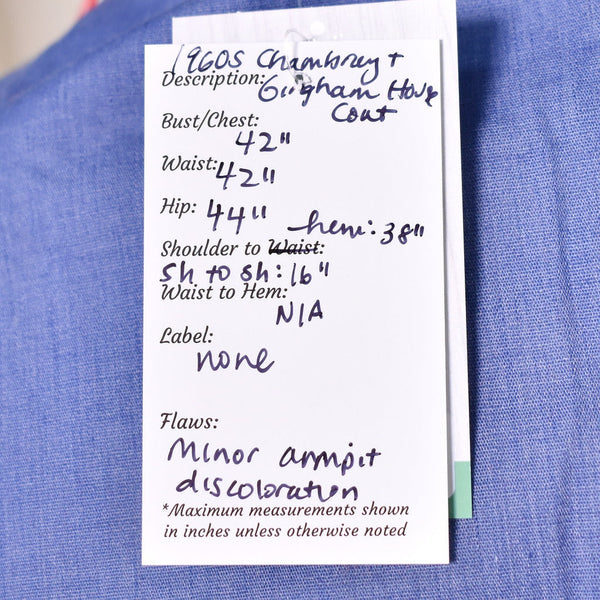 1960s Chambray +
Description: Gingham House
Coat
Bust/Chest:
42"
Waist: 42"
Hip: 44"
hem: 38"
Shoulder to Waist:
sh to sh: 16"
Waist to Hem:
N/A
Label:
none
Flaws:
Minor armpit
discoloration
*Maximum measurements shown
in inches unless otherwise noted